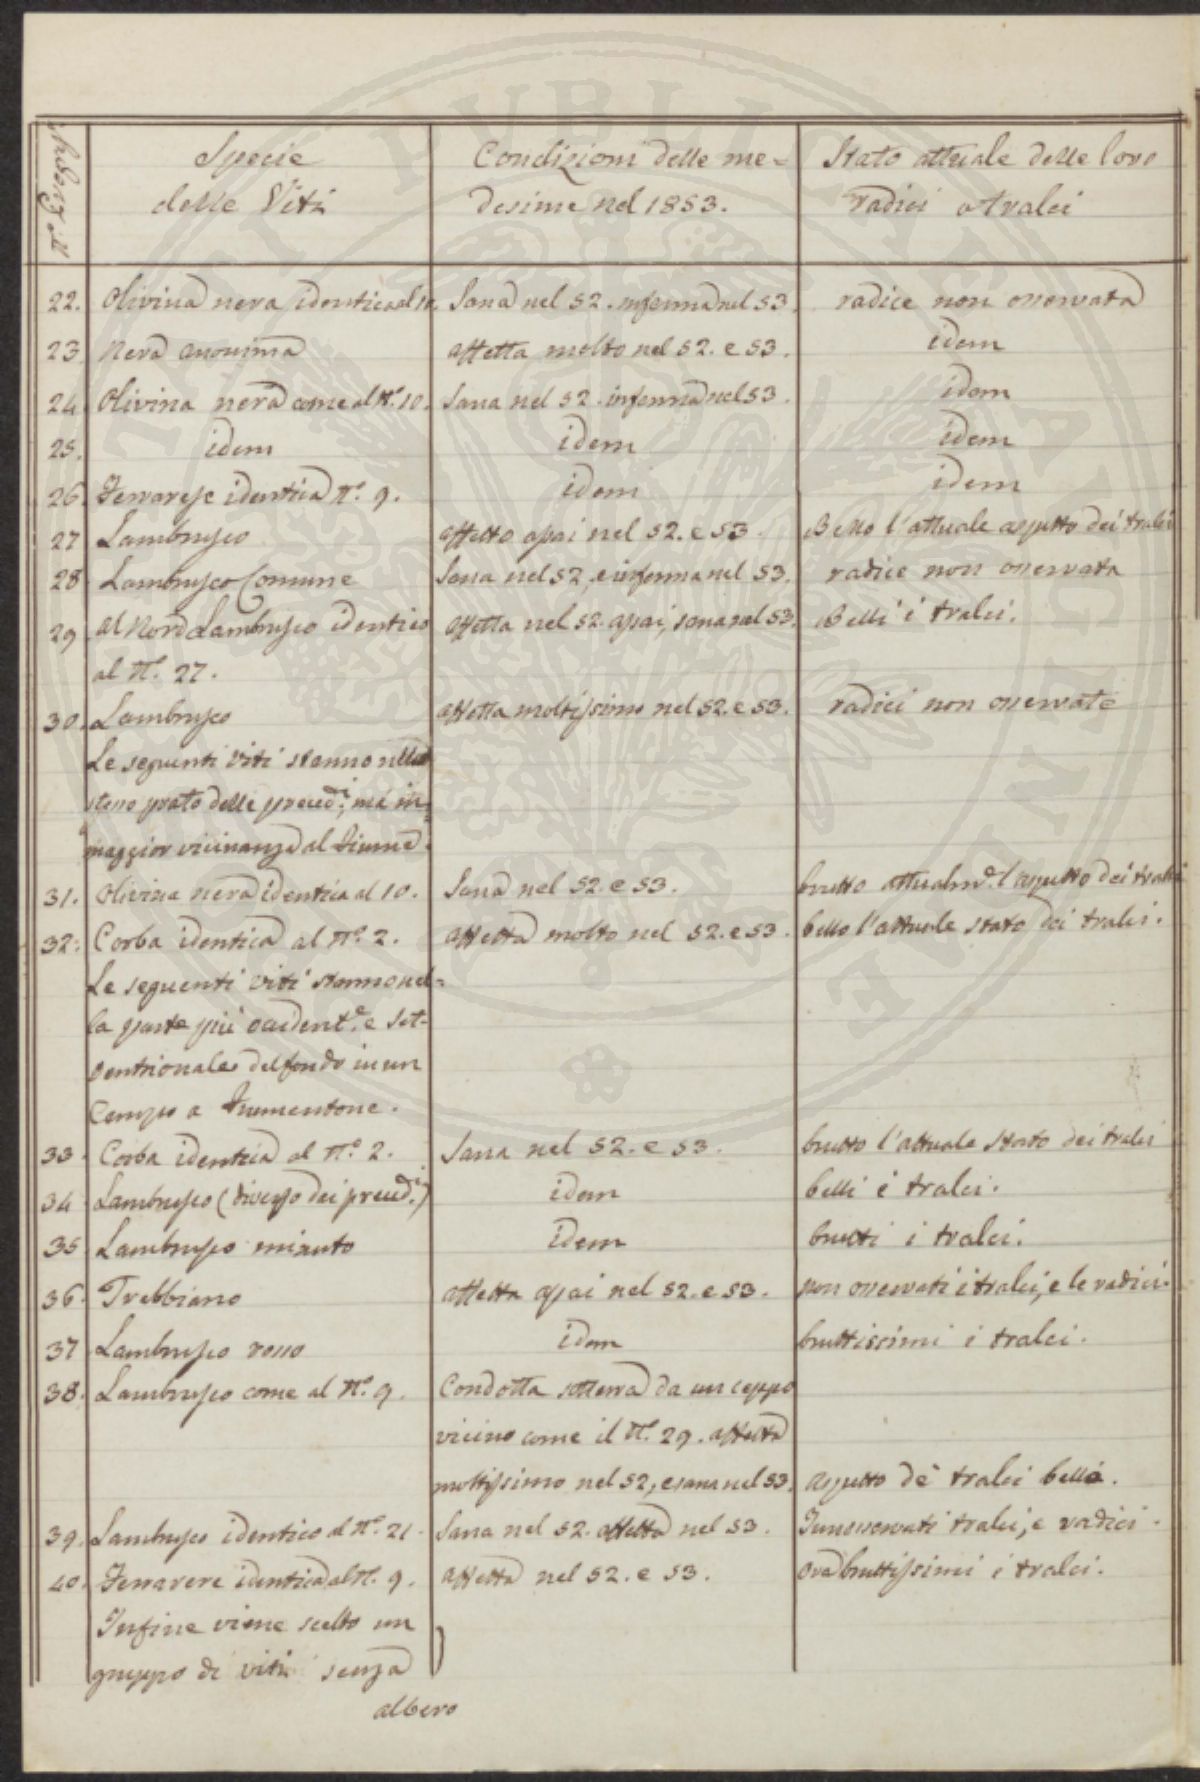 Specie
delle Viti
Condizioni delle me=
desime nel 1853.
Stato attuale delle loro
radici o tralci
22. Olivina nera identica al 10. Sana nel 52. inferma nel 53. radice non osservata
23. Nera anonima affetta molto nel 52. e 53. idem
24. Olivina nera come al N.° 10. Sana nel 52. inferma nel 53. idem
25. idem idem idem
26. Ferrarese identica N.° 9. idem idem
27 Lambrusco affetto assai nel 52. e 53. Bello l'attuale aspetto dei tralci
28 Lambrusco Comune Sana nel 52, e inferma nel 53. radice non osservata
29 al Nord Lambrusco identico affetta nel 52. assai, sana nel 53. Belli i tralci.
al N.° 27.
30. Lambrusco affetta moltissimo nel 52. e 53. radici non osservate
Le seguenti viti stanno nello
stesso prato delle preced.i, ma in
maggior vicinanza al fiume.
31. Olivina nera identica al 10. Sana nel 52. e 53. brutto attualm.e l'aspetto dei tralci
32. Corba identica al N.° 2. affetta molto nel 52. e 53. bello l'attuale stato dei tralci.
Le seguenti viti stanno nel=
la parte più occident.e e set-
tentrionale del fondo in un
Campo a frumentone.
33. Corba identica al N.° 2. Sana nel 52. e 53. brutto l'attuale stato dei tralci
34 Lambrusco (diverso dai preced.i) idem belli i tralci.
35 Lambrusco minuto idem brutti i tralci.
36. Trebbiano affetta assai nel 52. e 53. non osservati i tralci, e le radici.
37 Lambrusco rosso idem bruttissimi i tralci.
38. Lambrusco come al N.° 9. Condotta sotterra da un ceppo
vicino come il N.° 29. affetta
moltissimo nel 52, e sana nel 53. aspetto de' tralci belli.
39. Lambrusco identico al N.° 21. Sana nel 52. affetta nel 53. Inosservati tralci, e radici.
40. Ferrarese identica al N.° 9. affetta nel 52. e 53. Ora bruttissimi i tralci.
Infine viene scelto un
gruppo di viti senza
albero